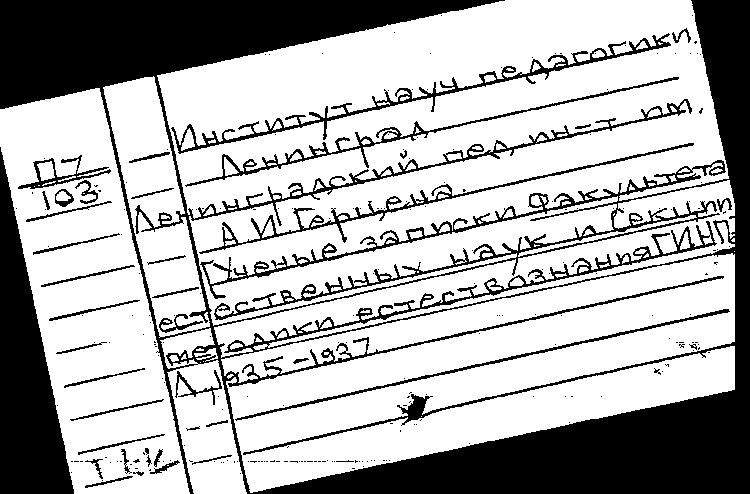 Институт науч педагогики.
Ленинград
П7
103
Ленинградский пед. ин-т им.
А. И. Герцена.
[Ученые записки Факультета
естественных наук и Секции
методики естествознания ГИНПа
Л., 1935-1937.